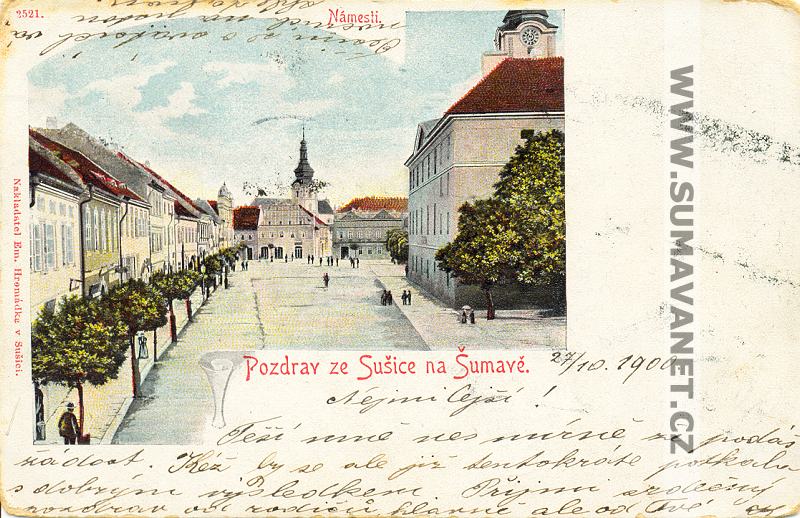 2521.
Náměstí.
Nakladatel Em. Hromádka v Sušici.
WWW.SUMAVANET.CZ
Pozdrav ze Sušice na Šumavě.
27/10. 1900
Nejmilejší!
Těší mně nesmírně že podáš
žádost. Kéž by se ale již tentokráte potkala
s dobrým výsledkem. Přijmi srdečný
pozdrav od rodičů hlavně ale od Tvé